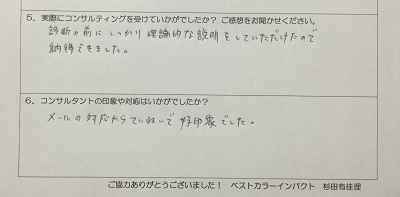 5．実際にコンサルティングを受けていかがでしたか？ ご感想をお聞かせください。
診断の前にしっかり理論的な説明をしていただけたので
納得できました。
6．コンサルタントの印象や対応はいかがでしたか？
メールの対応からていねいで好印象でした。
ご協力ありがとうございました！ ベストカラーインパクト 杉田有佳理